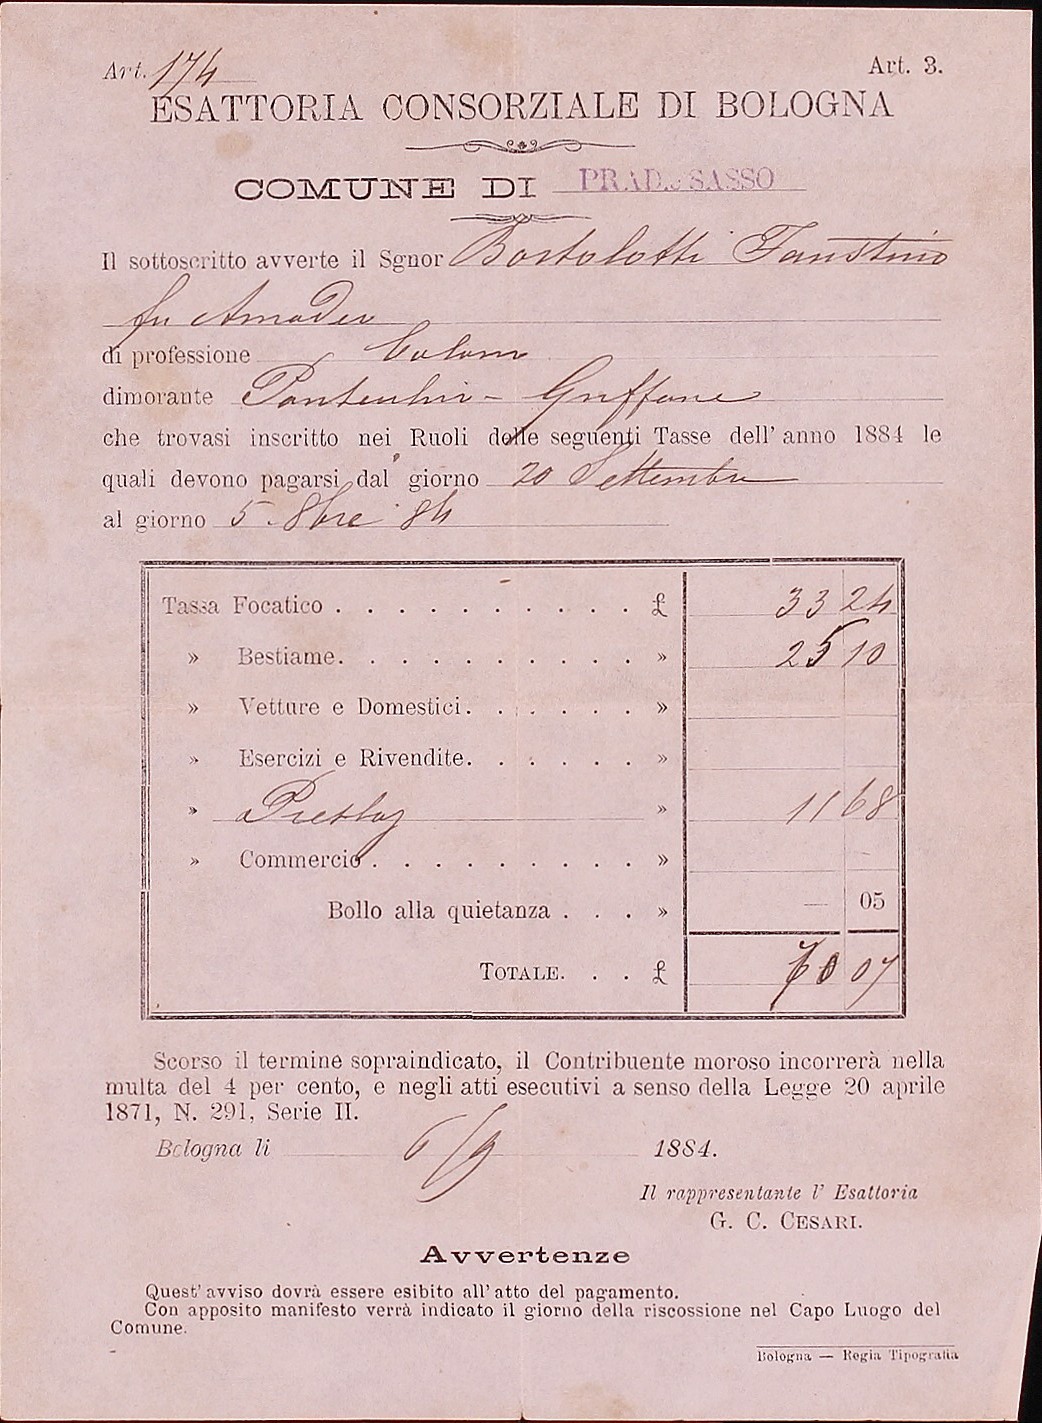 Art. 174
Art. 3.
ESATTORIA CONSORZIALE DI BOLOGNA
COMUNE DI SASSO
Il sottoscritto avverte il Sgnor Bortolotti Faustino
fu Amadeo
di professione Colono
dimorante Pontecchio - Griffone
che trovasi inscritto nei Ruoli delle seguenti Tasse dell' anno 1884 le
quali devono pagarsi dal giorno 20 Settembre
al giorno 5. 8bre 84
Tassa Focatico . . . . . . . . . . £ 33 24
» Bestiame. . . . . . . . . . » 25 10
» Vetture e Domestici. . . . . . . »
» Esercizi e Rivendite. . . . . . »
» » 11 68
» Commercio . . . . . . . . . »
Bollo alla quietanza . . . » — 05
TOTALE. . . £ 70 07
Scorso il termine sopraindicato, il Contribuente moroso incorrerà nella
multa del 4 per cento, e negli atti esecutivi a senso della Legge 20 aprile
1871, N. 291, Serie II.
Bologna li 6/9 1884.
Il rappresentante l' Esattoria
G. C. CESARI.
Avvertenze
Quest' avviso dovrà essere esibito all' atto del pagamento.
Con apposito manifesto verrà indicato il giorno della riscossione nel Capo Luogo del
Comune.
Bologna — Regia Tipografia